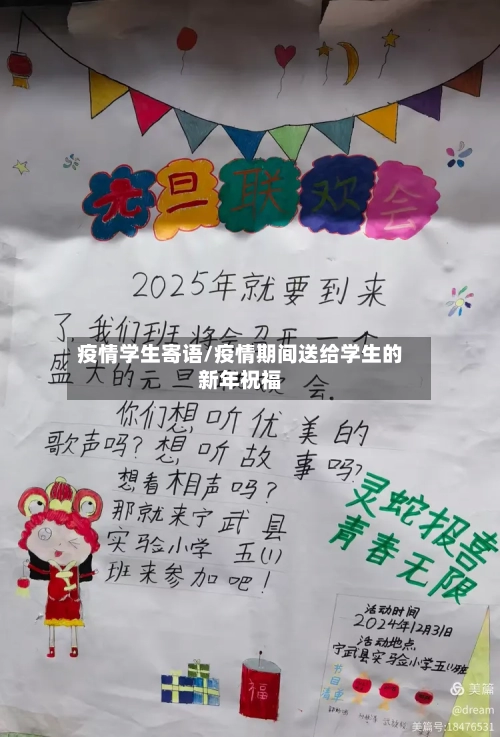 元旦联欢会
2025年就要到来
了,我们班将会召开一个
疫情学生寄语/疫情期间送给学生的
新年祝福
盛大的元旦 欢会.
你们想听优美的
歌声吗?想听故事吗?
想看相声吗?
那就来宁武县
实验小学五(1)
班来参加吧!
灵蛇报喜
青春无限
活动时间
2024年12月31日
活动地点
宁武县实验小学五(1)班
节目清单
福
美篇
@dream
美篇号:18476531